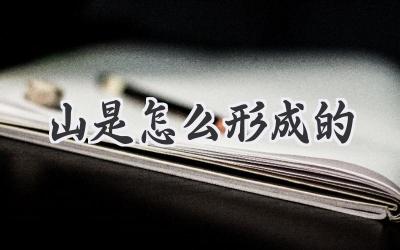 山是怎么形成的